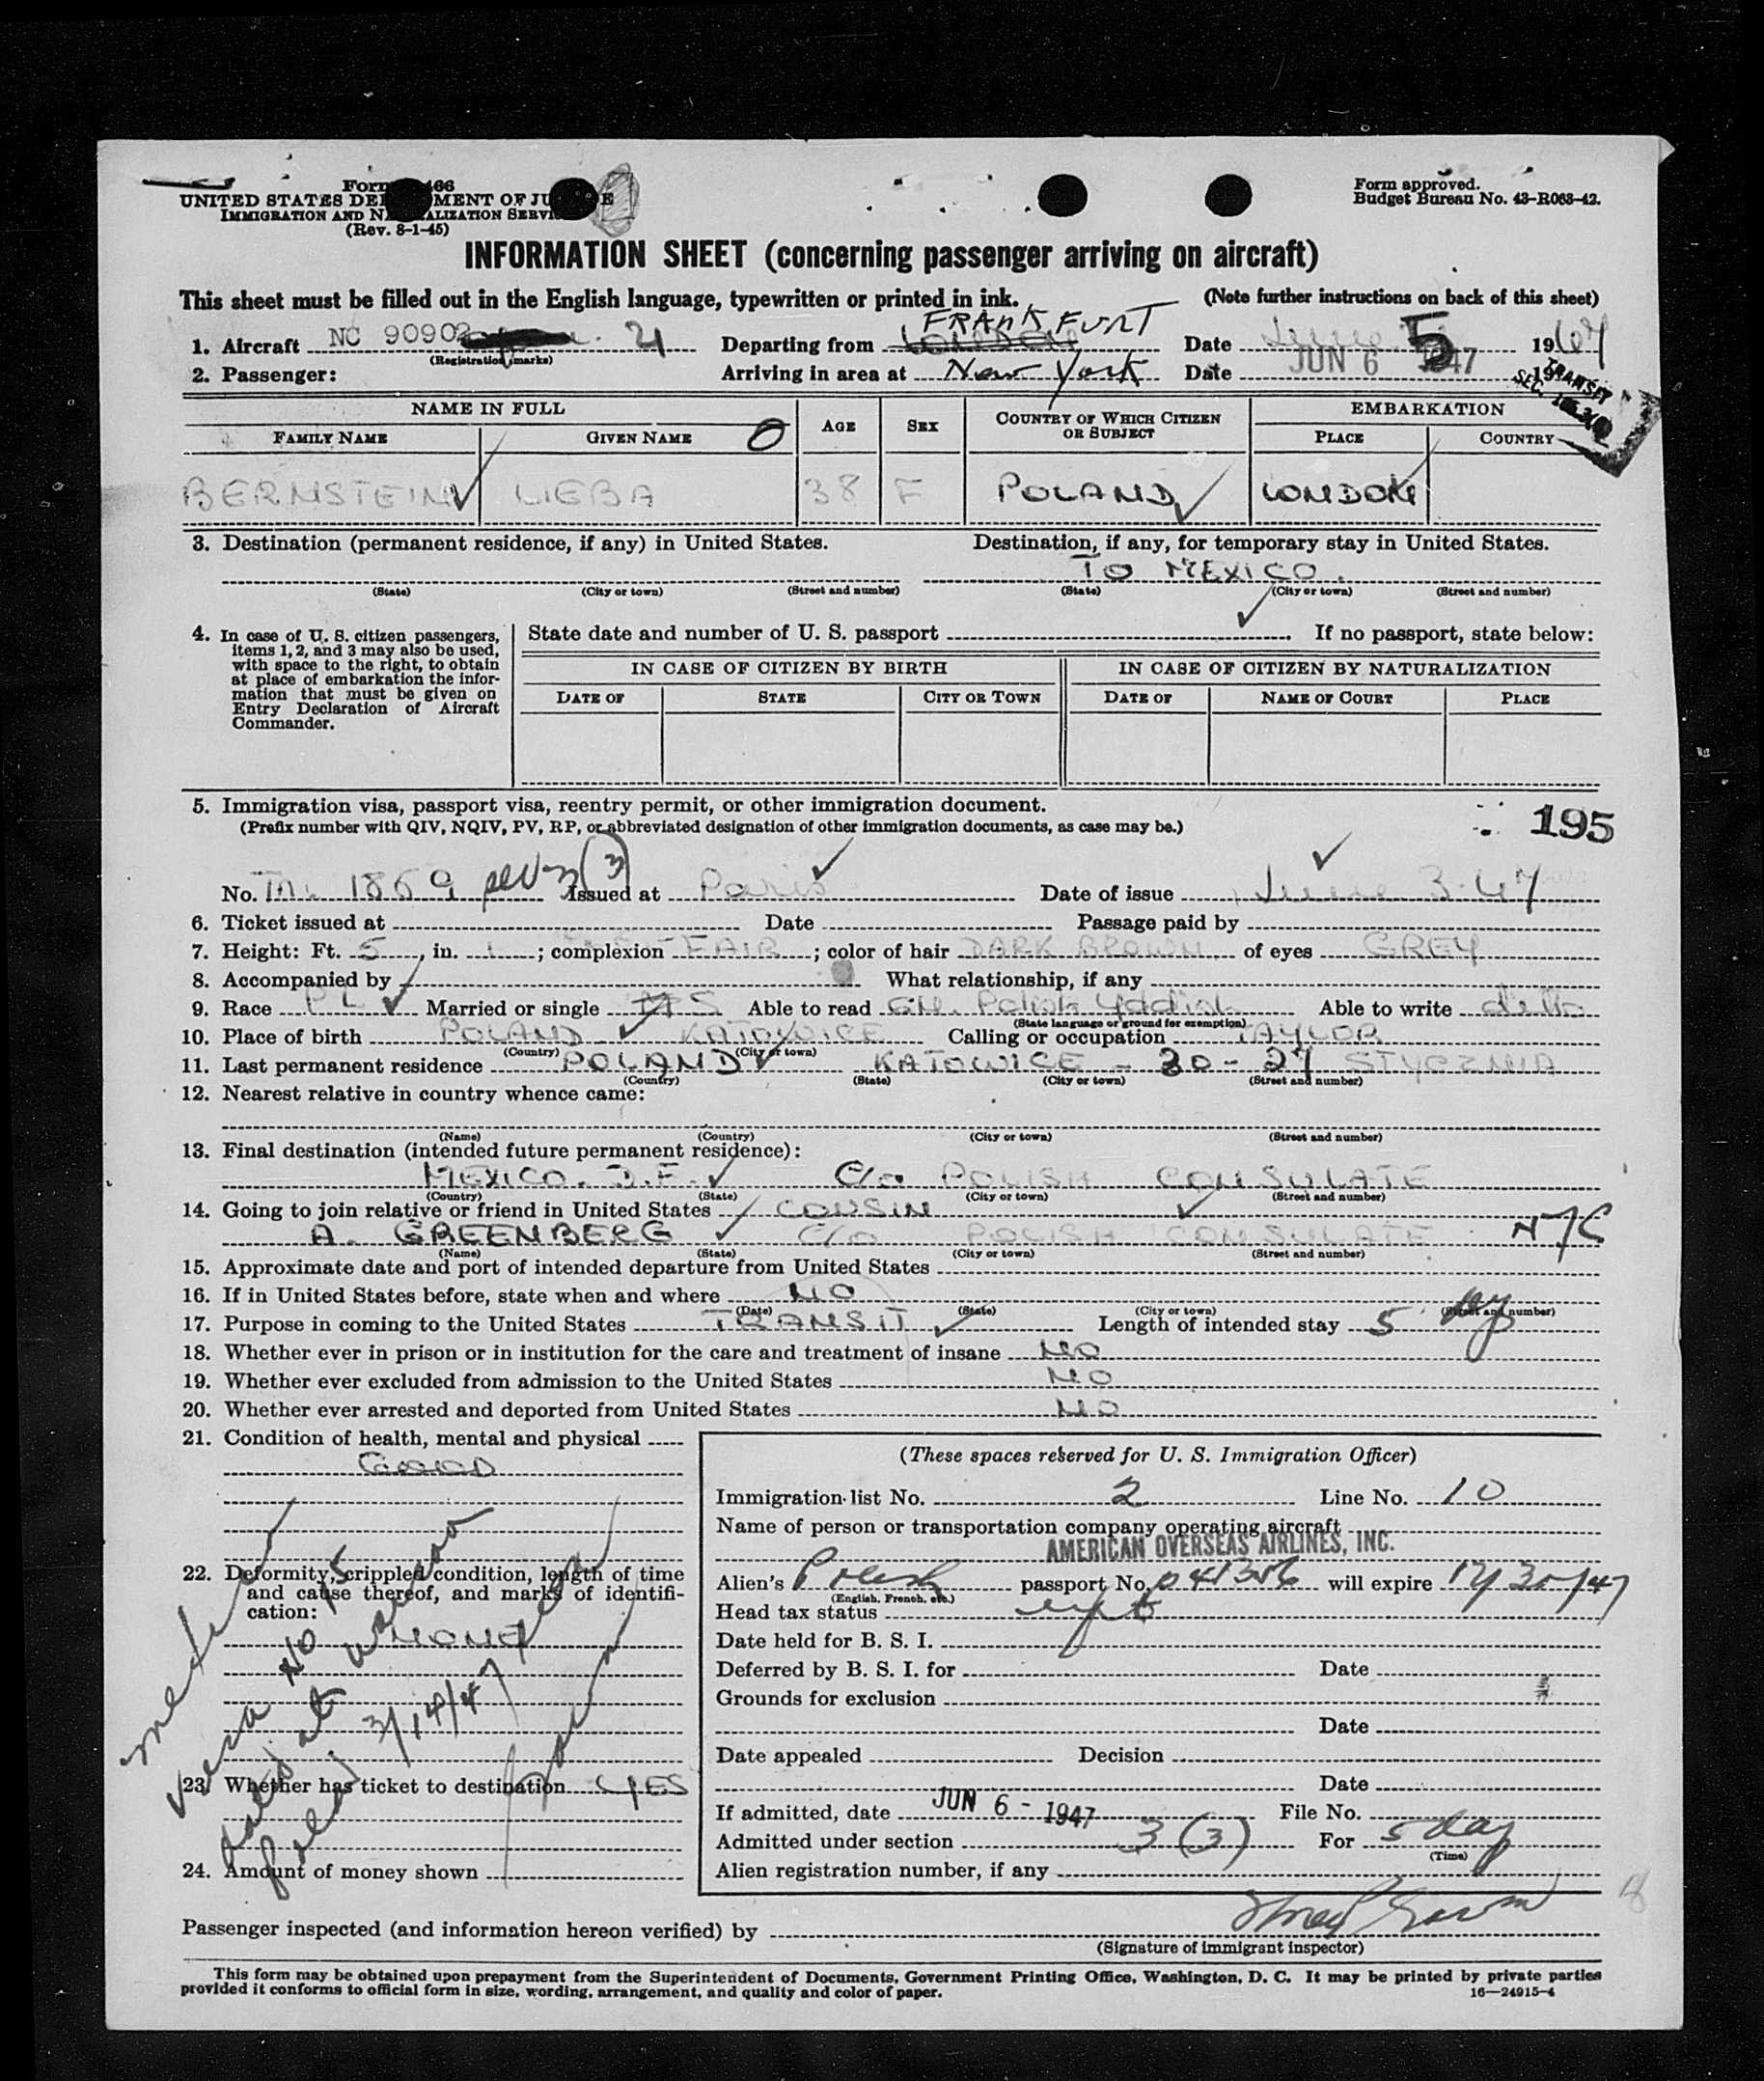 Form 466
UNITED STATES DEPARTMENT OF JUSTICE
IMMIGRATION AND NATURALIZATION SERVICE
(Rev. 8-1-45)
Form approved.
Budget Bureau No. 43-R063-42.
INFORMATION SHEET (concerning passenger arriving on aircraft)
This sheet must be filled out in the English language, typewritten or printed in ink. (Note further instructions on back of this sheet)
FRANKFURT
1. Aircraft NC 90902 21 Departing from LONDON Date June 5 1947
(Registration marks)
2. Passenger: Arriving in area at New York Date JUN 6 1947 19
TRANSIT
SEC.
NAME IN FULL AGE SEX COUNTRY OF WHICH CITIZEN OR SUBJECT EMBARKATION
FAMILY NAME GIVEN NAME O PLACE COUNTRY
BERNSTEIN LIEBA 38 F POLAND LONDON
3. Destination (permanent residence, if any) in United States. Destination, if any, for temporary stay in United States.
TO MEXICO.
(State) (City or town) (Street and number) (State) (City or town) (Street and number)
4. In case of U. S. citizen passengers, items 1, 2, and 3 may also be used, with space to the right, to obtain at place of embarkation the information that must be given on Entry Declaration of Aircraft Commander.
State date and number of U. S. passport If no passport, state below:
IN CASE OF CITIZEN BY BIRTH IN CASE OF CITIZEN BY NATURALIZATION
DATE OF STATE CITY OR TOWN DATE OF NAME OF COURT PLACE
5. Immigration visa, passport visa, reentry permit, or other immigration document.
(Prefix number with QIV, NQIV, PV, RP, or abbreviated designation of other immigration documents, as case may be.)
195
No. 1859 (3) Issued at Paris Date of issue June 3-47
6. Ticket issued at Date Passage paid by
7. Height: Ft. 5, in. 1; complexion FAIR; color of hair DARK BROWN of eyes GREY
8. Accompanied by What relationship, if any
9. Race PL Married or single S Able to read Polish Yddish Able to write ditto
(State language or ground for exemption)
10. Place of birth POLAND KATOWICE Calling or occupation TAYLOR
(Country) (City or town)
11. Last permanent residence POLAND KATOWICE - 20-27 STYCZNIA
(Country) (State) (City or town) (Street and number)
12. Nearest relative in country whence came:
(Name) (Country) (City or town) (Street and number)
13. Final destination (intended future permanent residence):
MEXICO. D.F. C/o POLISH CONSULATE
(Country) (State) (City or town) (Street and number)
14. Going to join relative or friend in United States COUSIN
A. GREENBERG C/o POLISH CONSULATE
(Name) (State) (City or town) (Street and number)
15. Approximate date and port of intended departure from United States
16. If in United States before, state when and where NO
(Date) (State) (City or town) (Street and number)
17. Purpose in coming to the United States TRANSIT Length of intended stay 5
18. Whether ever in prison or in institution for the care and treatment of insane NO
19. Whether ever excluded from admission to the United States NO
20. Whether ever arrested and deported from United States NO
21. Condition of health, mental and physical
GOOD
22. Deformity, crippled condition, length of time and cause thereof, and marks of identification:
NONE
Visa No 15
at Warsaw
3/14/47
23. Whether has ticket to destination YES
24. Amount of money shown
(These spaces reserved for U. S. Immigration Officer)
Immigration list No. 2 Line No. 10
Name of person or transportation company operating aircraft
AMERICAN OVERSEAS AIRLINES, INC.
Alien's Polish passport No. 041356 will expire 12/30/47
(English, French, etc.)
Head tax status
Date held for B. S. I.
Deferred by B. S. I. for Date
Grounds for exclusion
Date
Date appealed Decision
Date
If admitted, date JUN 6 - 1947 File No.
Admitted under section 3 (3) For 5 day
(Time)
Alien registration number, if any
Passenger inspected (and information hereon verified) by
(Signature of immigrant inspector)
This form may be obtained upon prepayment from the Superintendent of Documents, Government Printing Office, Washington, D. C. It may be printed by private parties
provided it conforms to official form in size, wording, arrangement, and quality and color of paper.
16—24915-4